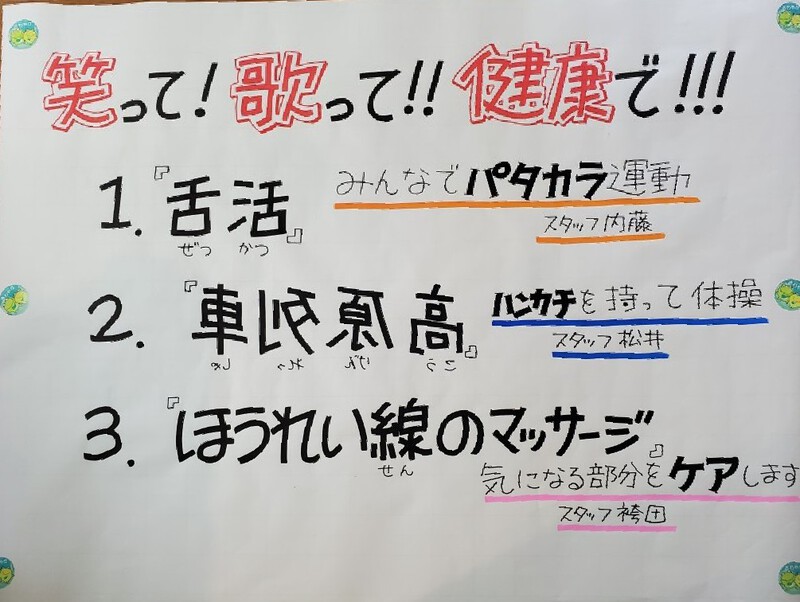 笑って！歌って!! 健康で!!!
1.『舌活』 みんなでパタカラ運動
ぜつ かつ
スタッフ内藤
2.『高原列車』 ハンカチを持って体操
こう げん れっ しゃ
スタッフ松井
3.『ほうれい線のマッサージ』
せん
気になる部分をケアします
スタッフ袴田